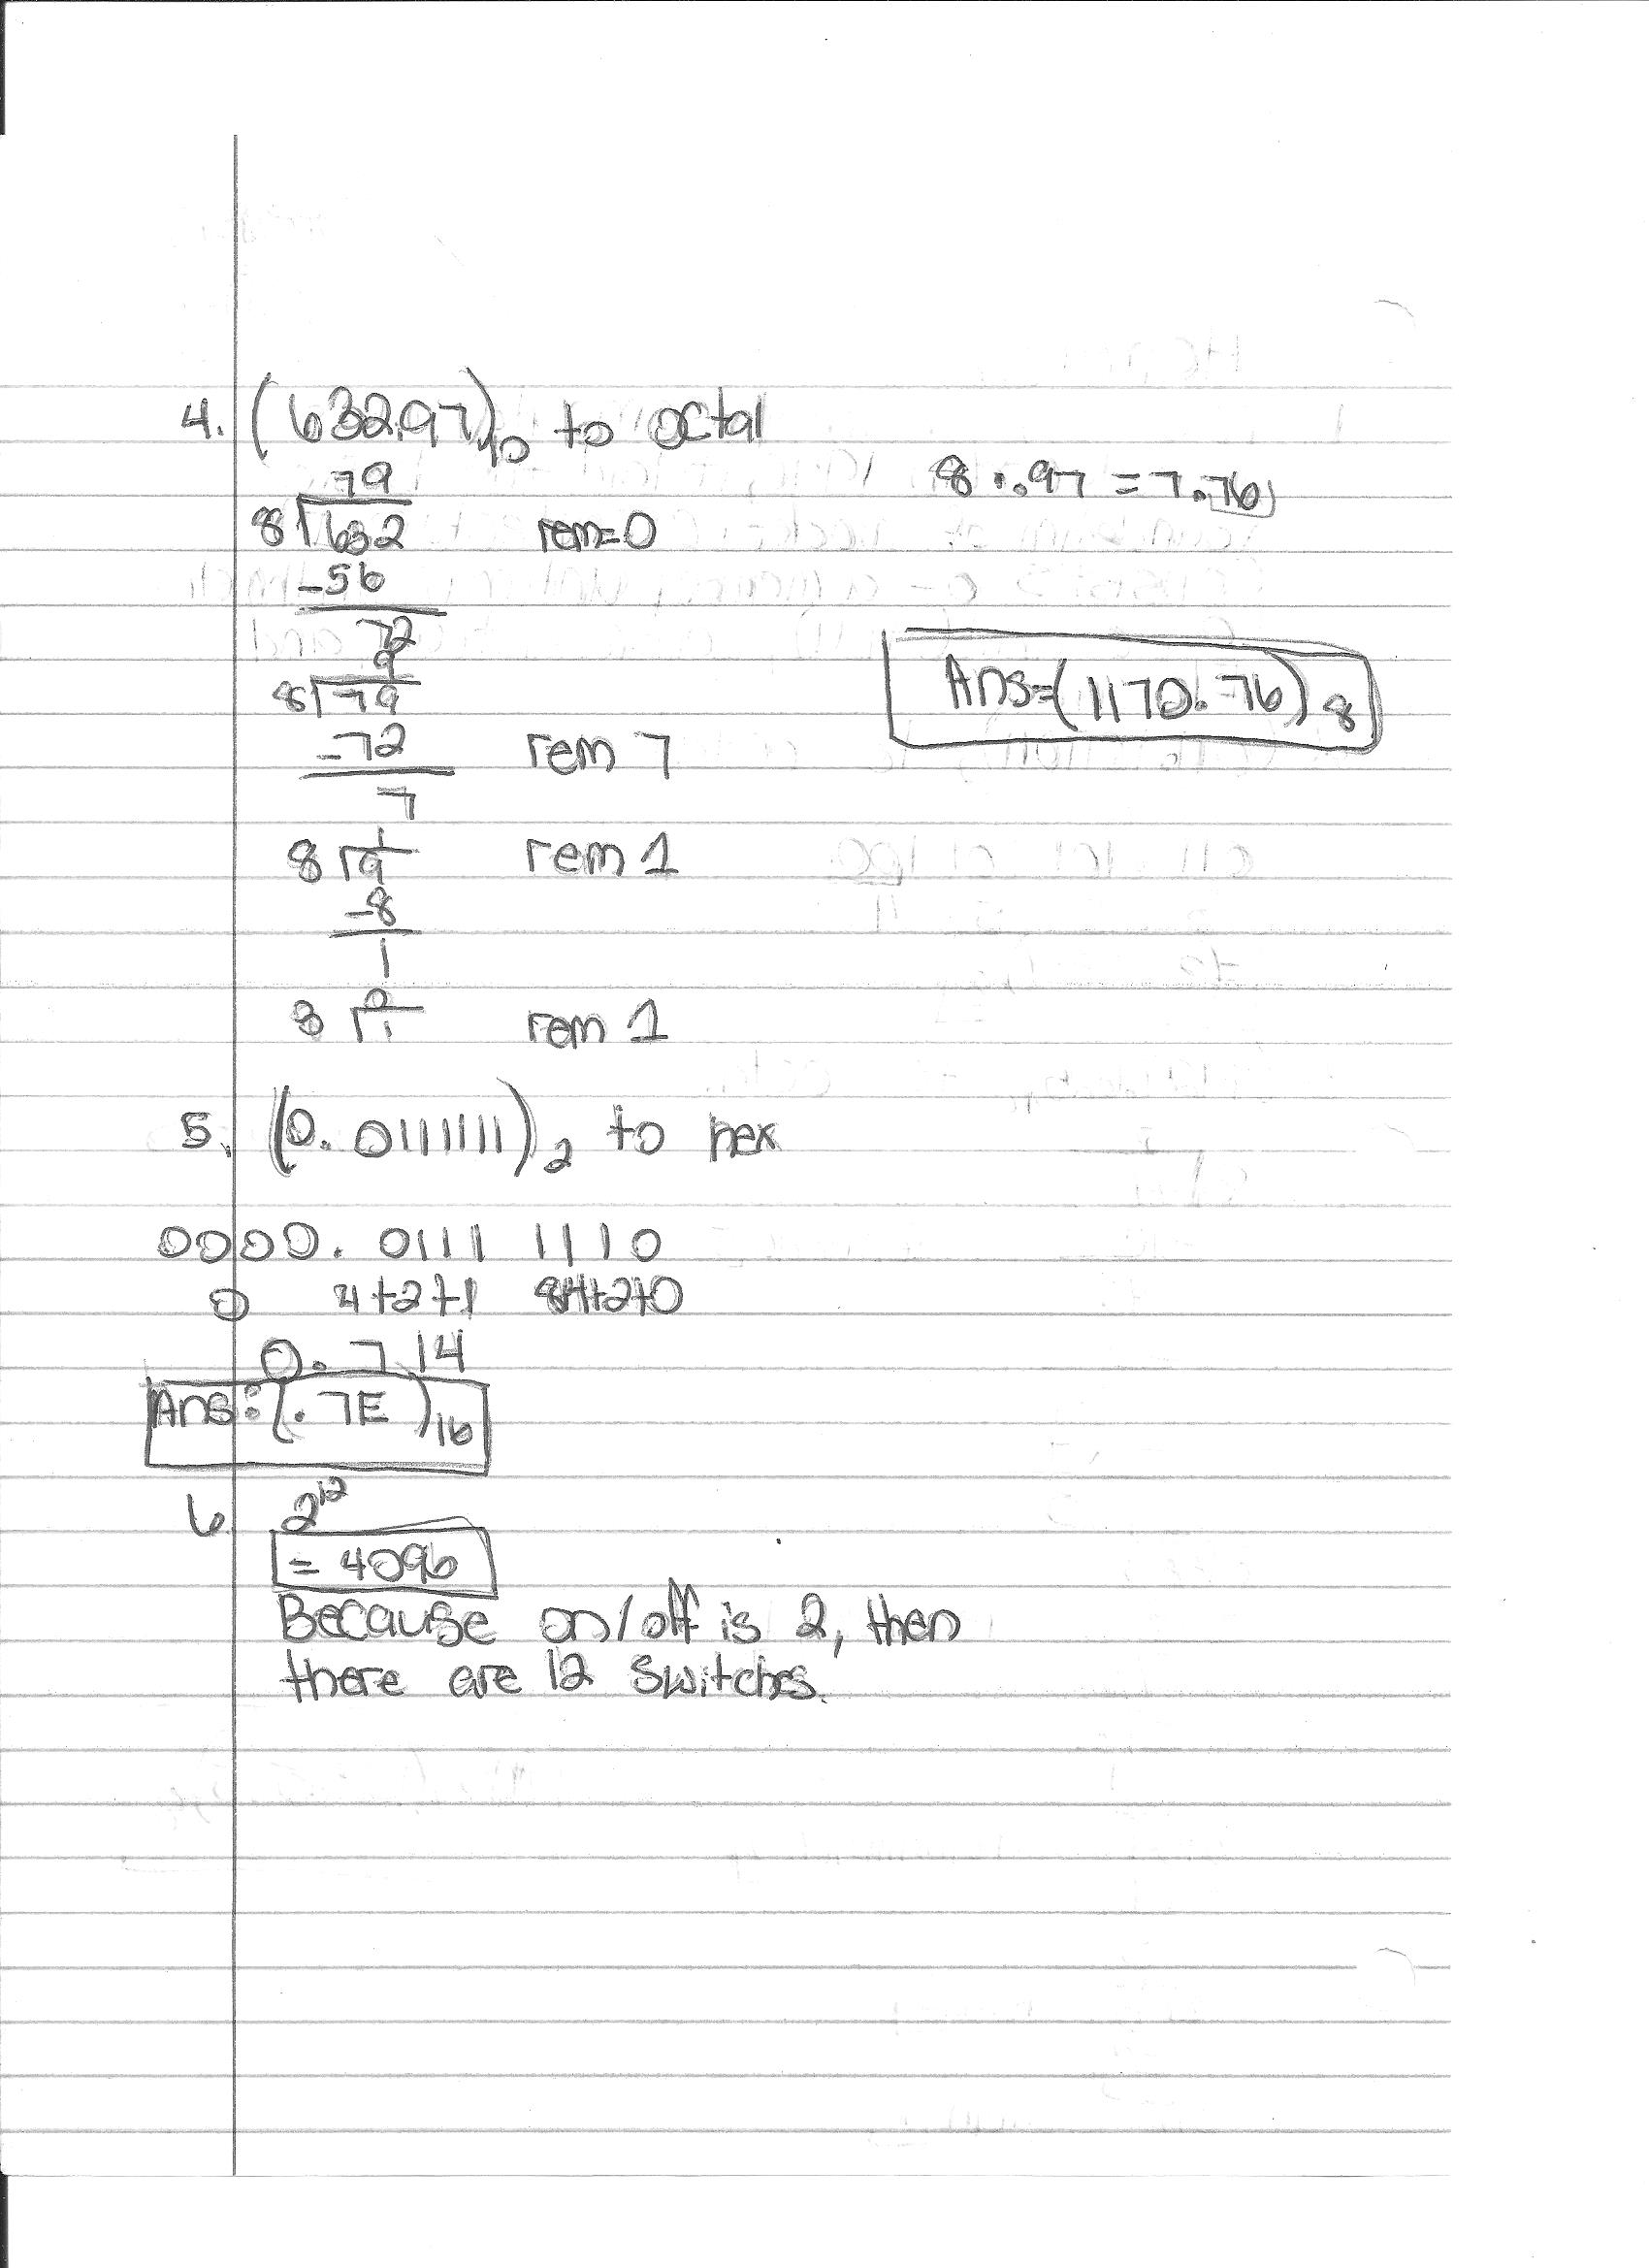 4. (632.97)10 to octal
79
8 . .97 = 7.76
8 632 rem=0
-56
72
9
8 79
-72 rem 7
7
Ans=(1170.76)8
1
8 9 rem 1
-8
1
0
8 1 rem 1
5. (0.0111111)2 to hex
0000. 0111 1110
0 4+2+1 8+4+2+0
0. 7 14
Ans: (.7E)16
6 2^12
= 4096
Because on/off is 2, then
there are 12 switches.